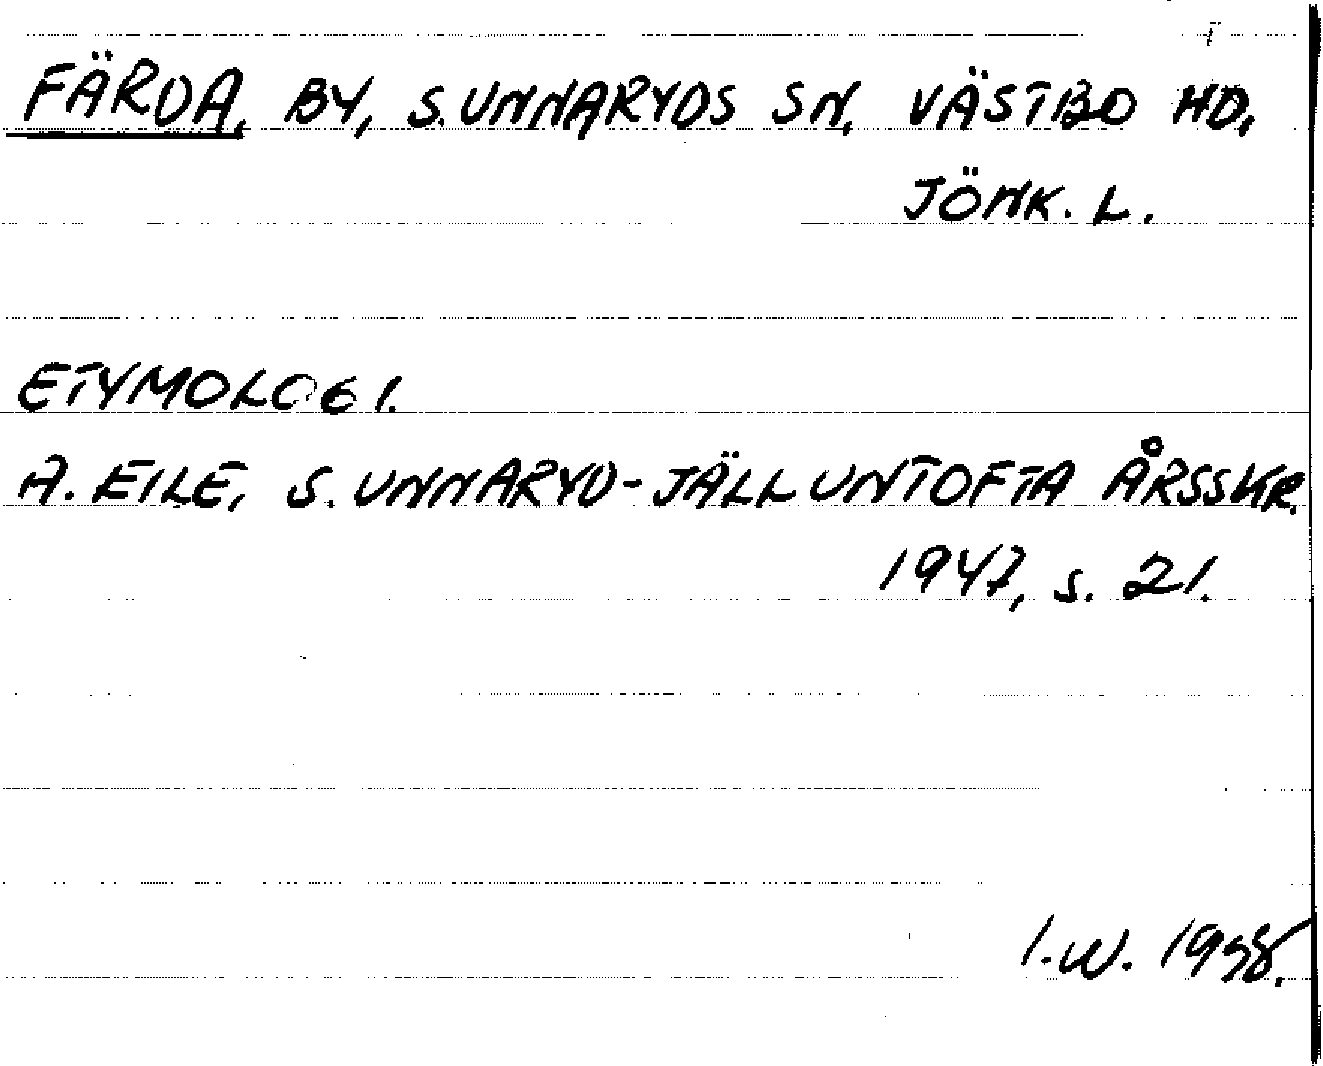 FÄRDA, BY, S. UNNARYDS SN, VÄSTBO HD,
JÖNK. L.
ETYMOLOGI.
A. EILE, S. UNNARYD-JÄLLUNTOFTA ÅRSSKR.
1947, s. 21.
I.W. 1958.